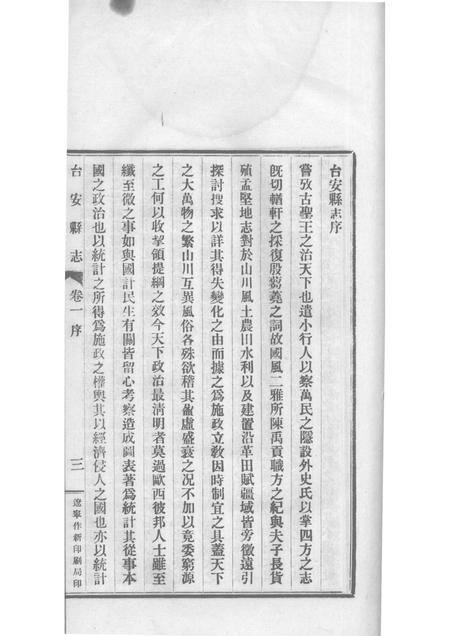 台安縣志序
嘗攷古聖王之治天下也遣小行人以察萬民之隱設外史氏以掌四方之志
旣切輶軒之採復殷蒭蕘之詞故國風二雅所陳禹貢職方之紀與夫子長貨
殖孟堅地志對於山川風土農田水利以及建置沿革田賦疆域皆旁徵遠引
探討搜求以詳其得失變化之由而據之爲施政立敎因時制宜之具蓋天下
之大萬物之繁山川互異風俗各殊欲稽其盈虛盛衰之况不加以竟委窮源
之工何以收挈領提綱之效今天下政治最淸明者莫過歐西彼邦人士雖至
纖至微之事如與國計民生有關皆留心考察造成圖表著爲統計其從事本
國之政治也以統計之所得爲施政之權輿其以經濟侵人之國也亦以統計
台安縣志
卷一序
三
遼寧作新印刷局印